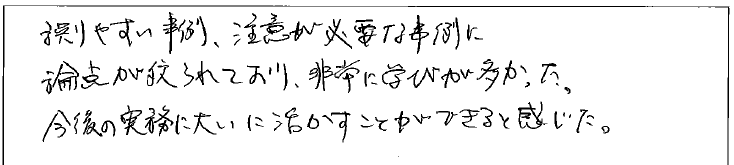 誤りやすい事例、注意が必要な事例に
論点が絞られており、非常に学びが多かった。
今後の実務に大いに活かすことができると感じた。